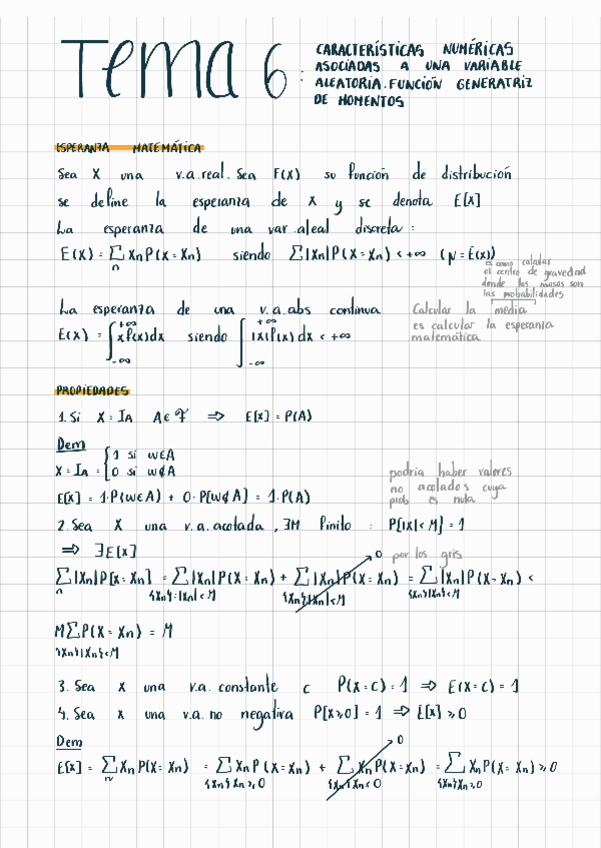 Tema 6:
CARACTERÍSTICAS NUMÉRICAS
ASOCIADAS A UNA VARIABLE
ALEATORIA. FUNCIÓN GENERATRIZ
DE MOMENTOS
ESPERANZA MATEMÁTICA
Sea X una v.a. real. Sea F(X) su función de distribución
se define la esperanza de X y se denota E[X]
La esperanza de una var. aleat discreta :
E(X) = ∑ₙ Xn P(X = Xn) siendo ∑|Xn|P(X = Xn) < +∞ (μ = E(X))
es como calcular
el centro de gravedad
donde las masas son
las probabilidades
La esperanza de una v.a. abs continua
E(X) = ∫_{-∞}^{+∞} x f(x) dx siendo ∫_{-∞}^{+∞} |x| f(x) dx < +∞
Calcular la media
es calcular la esperanza
matemática
PROPIEDADES
1. Si X = IA A ∈ F ⇒ E[X] = P(A)
Dem
X = IA = { 1 si w∈A
0 si w∉A
E[X] = 1·P(w∈A) + 0·P[w∉A] = 1·P(A)
podria haber valores
no acotados cuya
prob es nula
2. Sea X una v.a. acotada , ∃M finito : P[|X| < M] = 1
⇒ ∃E[X]
por los gris
∑ₙ |Xn|P[X = Xn] = ∑_{{Xn}:|Xn|<M} |Xn|P(X = Xn) + ∑_{{Xn}||Xn|<M} |Xn|P(X = Xn) → 0 = ∑_{{Xn}||Xn|<M} |Xn|P(X = Xn) <
M∑_{{Xn}|{Xn}<M} P(X = Xn) = M
3. Sea X una v.a. constante c P(X = C) = 1 ⇒ E(X = C) = 1
4. Sea X una v.a. no negativa P[X ≥ 0] = 1 ⇒ E[X] ≥ 0
Dem
E[X] = ∑ₙ Xn P(X = Xn) = ∑_{{Xn}|Xn ≥ 0} Xn P(X = Xn) + ∑_{{Xn}|Xn < 0} Xn P(X = Xn) → 0 = ∑_{{Xn}|Xn ≥ 0} Xn P(X = Xn) ≥ 0